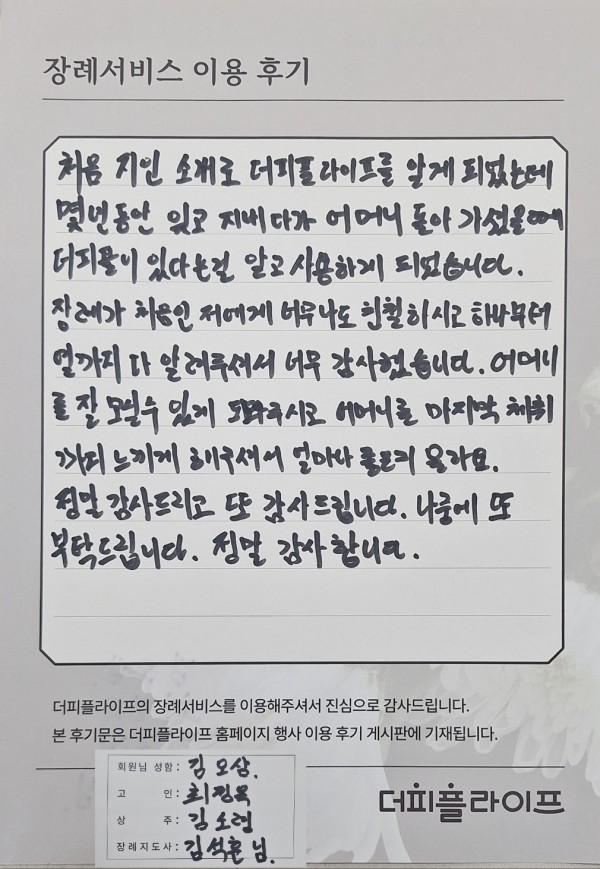 장례서비스 이용 후기
처음 지인 소개로 더피플라이프를 알게 되었는데
몇년동안 잊고 지내다가 어머니 돌아 가셨을때
더피플이 있다는걸 알고 사용하게 되었습니다.
장례가 처음인 저에게 너무나도 친철하시고 하나부터
열까지 다 알려주셔서 너무 감사했습니다. 어머니
를 잘 모실수 있게 도와주시고 어머니를 마지막 체취
까지 느끼게 해주셔서 얼마나 좋은지 몰라요.
정말 감사드리고 또 감사드립니다. 나중에 또
부탁드립니다. 정말 감사합니다.
더피플라이프의 장례서비스를 이용해주셔서 진심으로 감사드립니다.
본 후기문은 더피플라이프 홈페이지 행사 이용 후기 게시판에 기재됩니다.
회원님 성함 : 김오상.
고 인 : 최정옥
상 주 : 김소연
장례지도사 : 김석훈 님.
더피플라이프